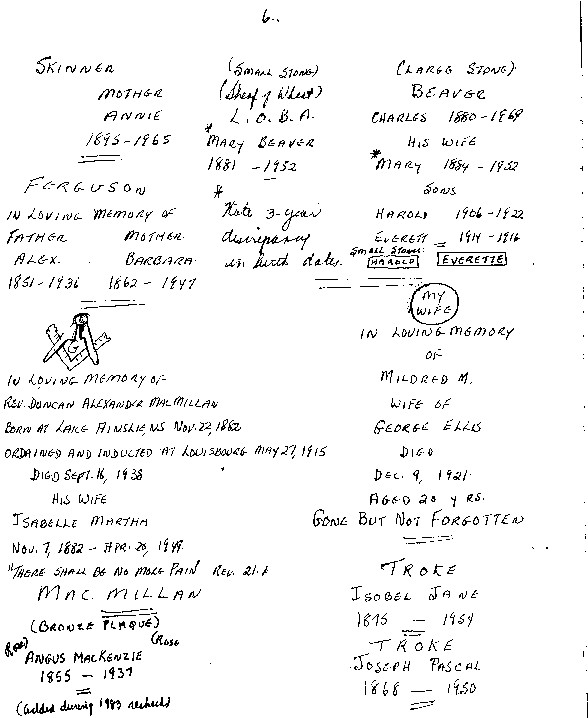 6.
SKINNER
MOTHER
ANNIE
1895-1965
FERGUSON
IN LOVING MEMORY OF
FATHER MOTHER
ALEX. BARBARA
1851-1936 1862-1947
G
IN LOVING MEMORY OF
REV. DUNCAN ALEXANDER MACMILLAN
BORN AT LAKE AINSLIE, NS NOV. 22, 1862
ORDAINED AND INDUCTED AT LOUISBOURG MAY 27, 1915
DIED SEPT. 16, 1938
HIS WIFE
ISABELLE MARTHA
NOV. 7, 1882 - APR. 20, 1949.
"THERE SHALL BE NO MORE PAIN REV. 21.4
MAC MILLAN
(BRONZE PLAQUE)
(Rose) (Rose
ANGUS MACKENZIE
1855 - 1937
(added during 1983 recheck)
(SMALL STONE)
(Sheaf of Wheat)
L.O.B.A.
* MARY BEAVER
1881 - 1952
*
Note 3-year
discrepancy
in birth dates.
(LARGE STONE)
BEAVER
CHARLES 1880-1969
HIS WIFE
* MARY 1884 - 1952
SONS
HAROLD 1906-1922
EVERETT 1914-1916
SMALL STONES
HAROLD EVERETTE
MY WIFE
IN LOVING MEMORY
OF
MILDRED M.
WIFE OF
GEORGE ELLIS
DIED
DEC. 9, 1921.
AGED 20 YRS.
GONE BUT NOT FORGOTTEN
TROKE
ISOBEL JANE
1875 - 1954
TROKE
JOSEPH PASCAL
1868 - 1950